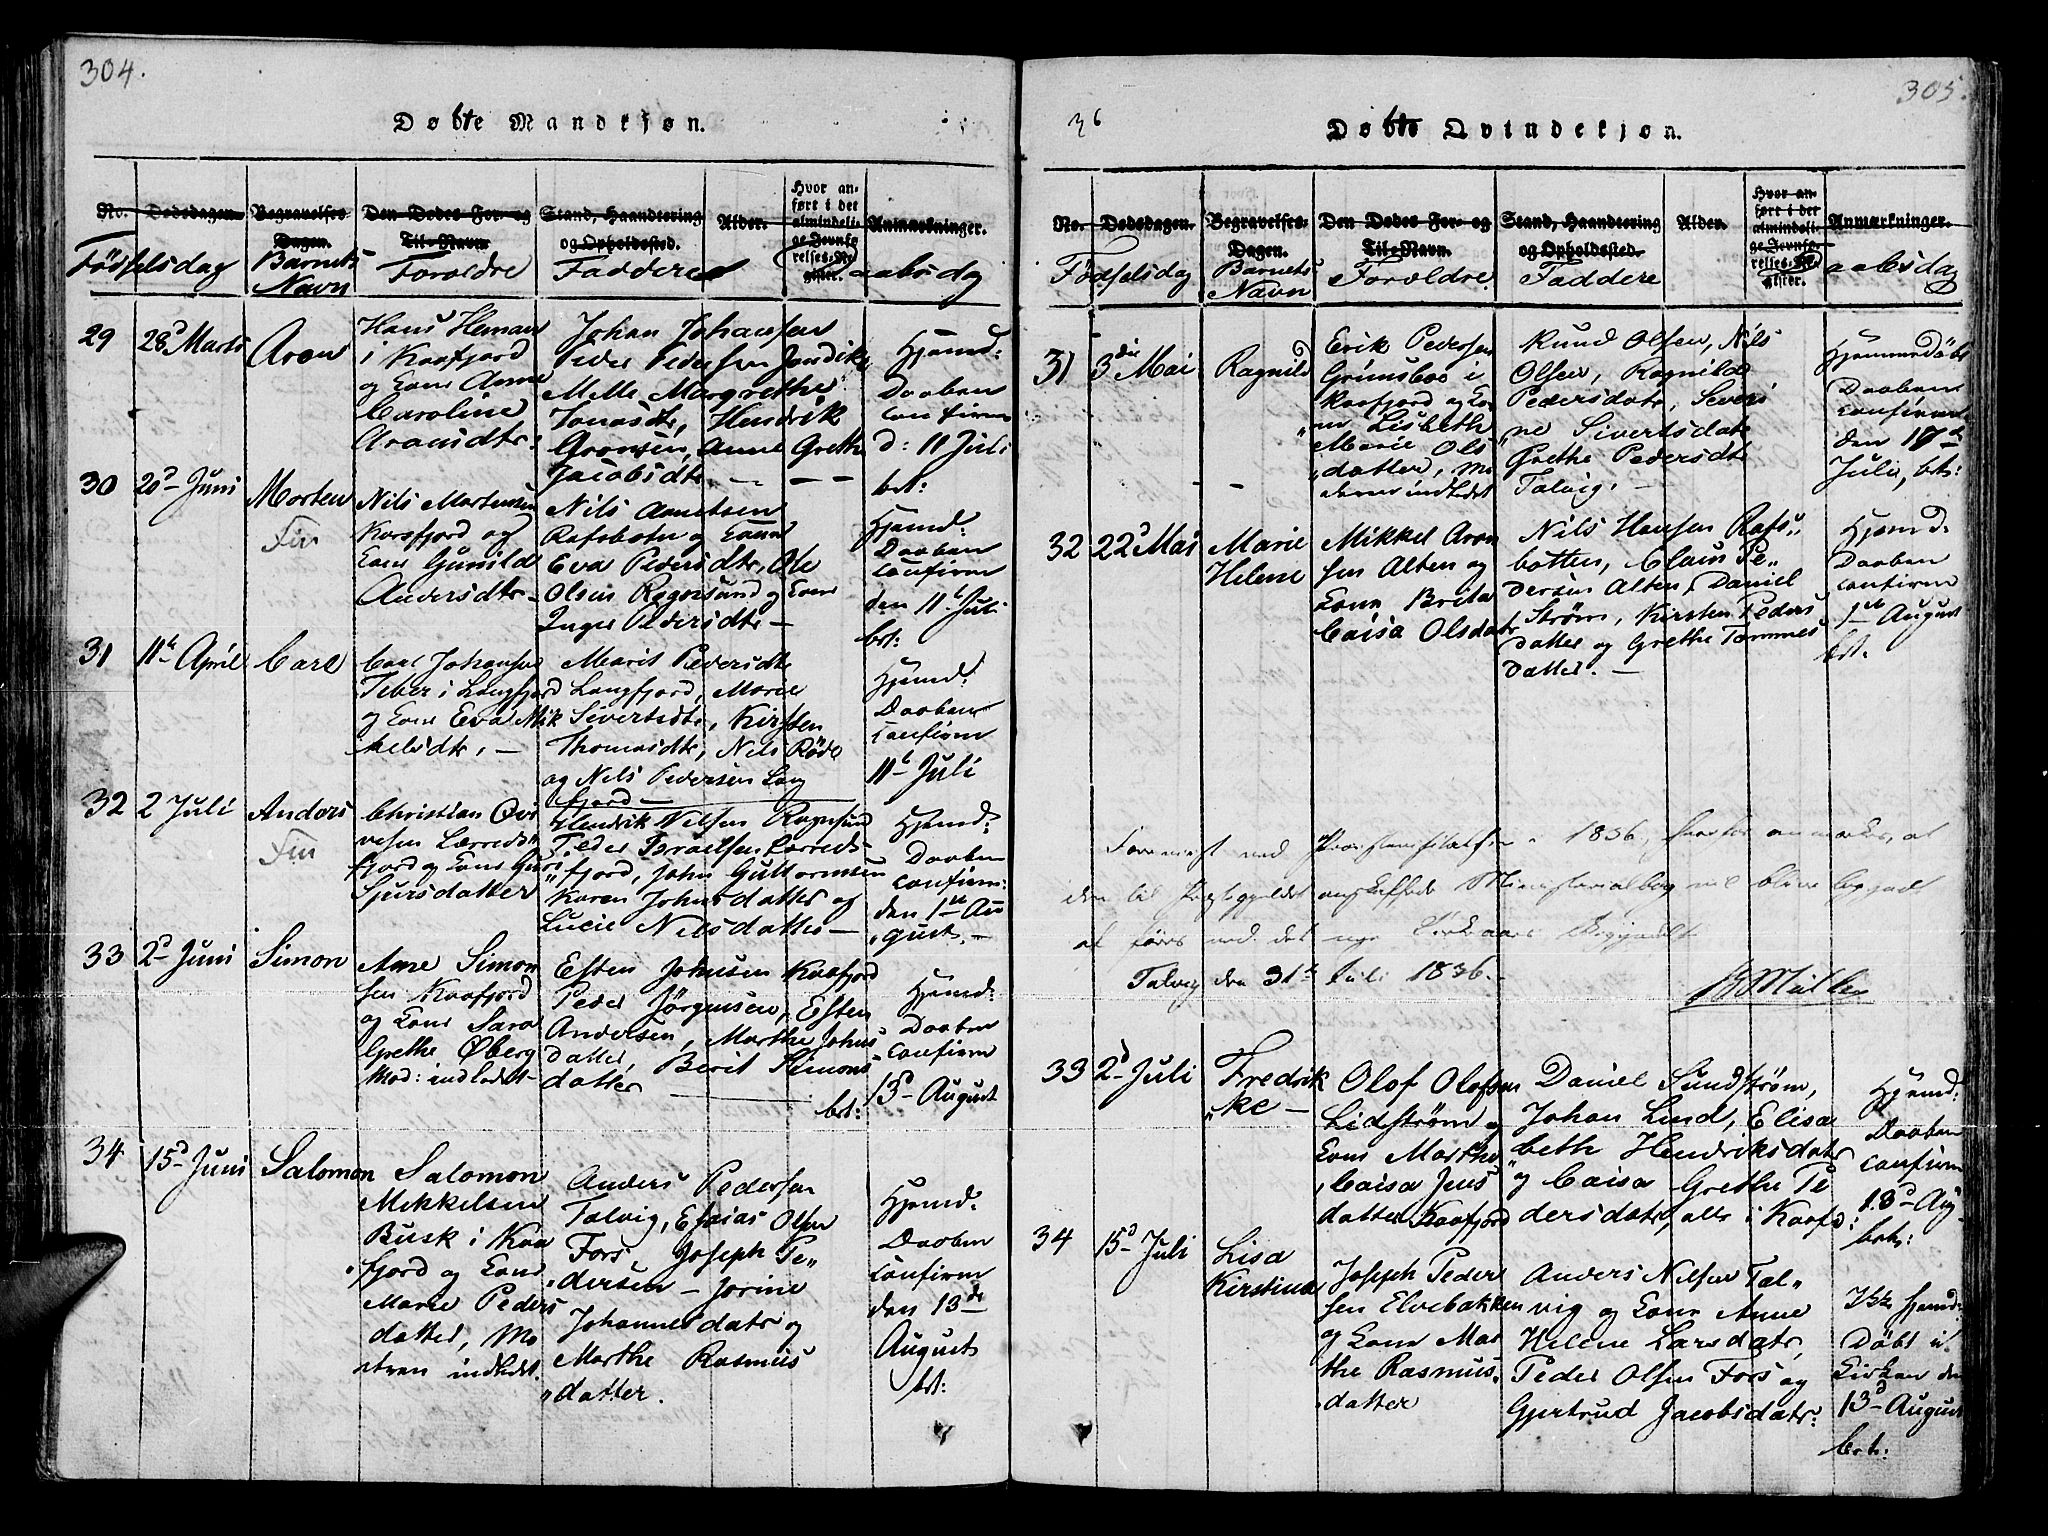 304.
Døbte Mandkjøn.
No. Dødsdagen. Begravelses Dagen. Den Dødes For- og Til-Navn. Stand, Haandtering og Opholdssted. Alder. Hvor anført i det almindelige Jevnførelses-Register. Anmærkninger.
Fødselsdag Barnets Navn Forældre Faddere Daabsdag
29 28d Marts Aron
Hans Heman
i Kaafjord
og Kone Anne
Caroline
Aronsdtr.
Johan Johansen
Peder Pedersen
Melle Margrethe
Jonasdtr, Hendrik
Gronsen, Anne Grethe
Jacobsdtr —
Hjemd:
Daaben
confirm
d: 11 Juli
brt:
30 20d Juni Morten
Fin
Nils Mortensen
Korsfjord og
Kone Gunild
Andersdtr —
Nils Anutsen
Rafsboten og Kone
Eva Pedersdtr, Ole
Olsen Rognsund og Kone
Inger Pedersdtr —
Hjemd:
Daaben
confirm
den 11te Juli
brt:
31 11te April Carl
Carl Johansen
Feber i Langfjord
og Kone Eva Mik
kelsdtr. —
Marit Pedersdtr
Langfjord, Marie
Sivertsdtr, Kirsten
Thomasdtr, Nils Røde
og Nils Pedersen Lang
fjord —
Hjemd:
Daaben
confirm
11te Juli
32 2 Juli Anders
Fin
Christian
Lerreds
fjord og Kone Guri
Sjursdatter
Hendrik Nilsen Rognsund
Peder Israelsen Lerreds
fjord, John Guttormsen
Karen Johnsdatter og
Lucie Nilsdatter —
Hjemd:
Daaben
confirm:
den 1ste Au
gust. —
33 2d Juni Simon
Arne Simon
sen Kaafjord
og Kone Sara
Grethe Øberg
Mod: indledet —
Esten Johnsen Kaafjord
Peder Jørgensen, Esten
Andersen, Marthe Johns
datter, Berit Simons
datter
Hjemd:
Daaben
confirm
13d August
brt:
34 15d Juni Salomon
Salomon
Mikkelsen
Busk i Kaa
fjord og Kone
Marie Peders
datter, Mo
deren indledt.
Anders Pedersen
Talvig, Esaias Olsen
Fors, Joseph Pe
dersen — Jorine
Johannesdatr og
Marthe Rasmus
datter.
Hjemd:
Daaben
confirm
den 13de
August
brt:
36
305.
Døbte Qvindekjøn.
No. Dødsdagen. Begravelses-Dagen. Den Dødes For- og Til-Navn. Stand, Haandtering og Opholdssted. Alder. Hvor anført i det almindelige Jevnførelses-Register. Anmærkninger.
Fødselsdag Barnets Navn Forældre Faddere Daabsdag
31 3die Mai Ragnild
Erik Pedersen
Grimsboe i
Kaafjord og Ko
ne Lisbeth
Marie Ols
datter, Mo
deren indledet
Knud Olsen, Nils
Olsen, Ragnild
Pedersdatr, Severi
ne Sivertsdatr
Grethe Pedersdtr
Talvig. —
Hjemmedøbt
Daaben
confirm
den 17de
Juli, brt:
32 22d Mai Marie
Helene
Mikkel Aron
sen Alten og
Kone Brita
Caisa Olsdatr
Nils Hansen Rafs
botten, Claus Pe
dersen Alten, Daniel
Strøm, Kirsten Peders
datter og Grethe Tommes
datter. —
Hjemd:
Daaben
confirm
1ste August
brt:
1836, anmærkes, at
den til Præstegjeldet anskaffede Ministerialbog vil blive begyndt
at føres ved det nye Kirkeaars Begyndelse
Talvig den 31te Juli 1836.
33 2d Juli Fredrik
ke —
Olof Olofsen
Lidstrøm og
Kone Marthe
Caisa Jens
datter Kaafjord
Daniel Sundstrøm,
Johan Lind, Elisa
beth Hendriksdatr
og Caisa Grethe Pe
dersdatr, alle i Kaafd:
Hjemd:
Daaben
confirm
13d Aug
brt:
34 15d Juli Lisa
Kirstina
Joseph Peder
sen Elvebakken
og Kone Mar
the Rasmus
datter
Anders Nilsen Tal
vig og Kone Anne
Helene Larsdatr,
Peder Olsen Fors og
Gjertrud Jacobsdatr:
Ikke hjemd:
Døbt i
Kirken den
13d August
brt: